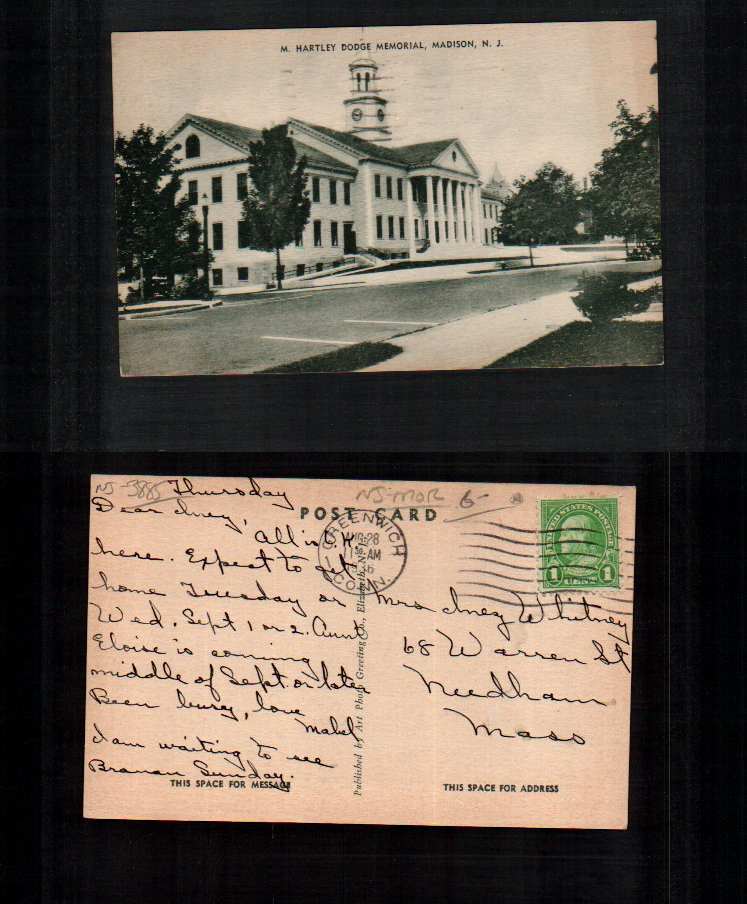 M. HARTLEY DODGE MEMORIAL, MADISON, N. J.
NJ-3885 Thursday
NJ-MOR 6-
POST CARD
Dear Inez,
All is O.K.
here. Expect to get
home Tuesday or
Wed. Sept 1 or 2. Aunt
Eloise is coming
middle of Sept. or later
Been busy, love
Mabel
I am waiting to see
Sunday.
GREENWICH
AUG 28
11 30 AM
36
CONN.
UNITED STATES POSTAGE
1 CENT 1
Mrs Inez Whitney
68 Warren St
Needham
Mass
Published by Art Photo Greeting Co., Elizabeth, N. J.
THIS SPACE FOR MESSAGE
THIS SPACE FOR ADDRESS